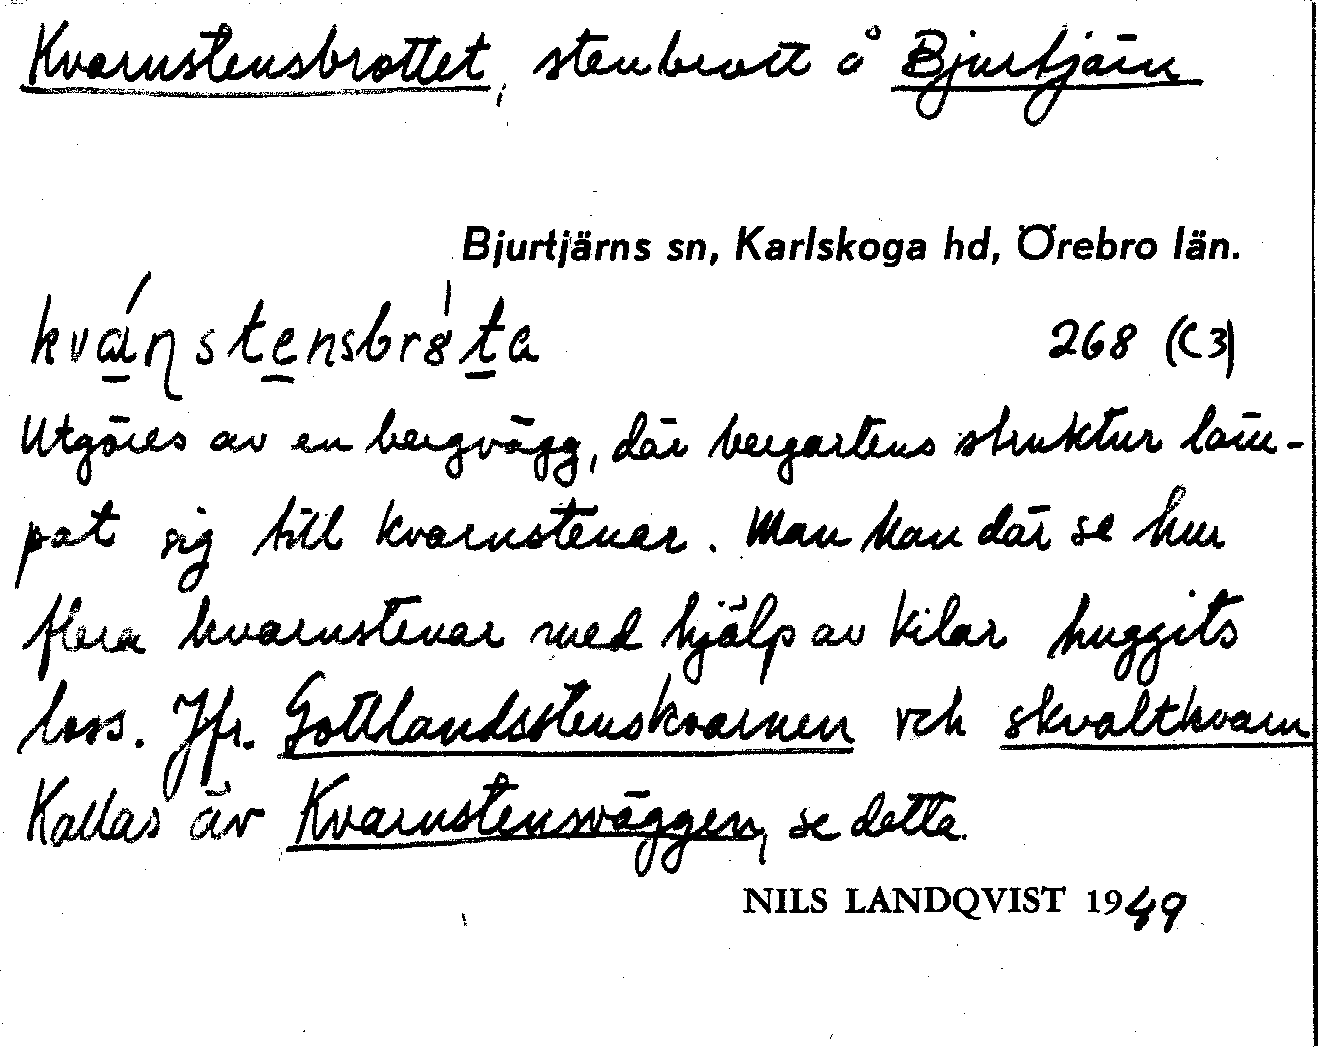 Kvarnstensbrottet, stenbrott å Bjurtjärn
Bjurtjärns sn, Karlskoga hd, Örebro län.
268 (C3)
Utgöres av en bergvägg, där bergartens struktur läm-
pat sig till kvarnstenar. Man kan där se hur
flera kvarnstenar med hjälp av kilar huggits
loss. Jfr. Gottlandsstenskvarnen och skvaltkvarn
Kallas äv Kvarnstensväggen, se detta.
NILS LANDQVIST 1949